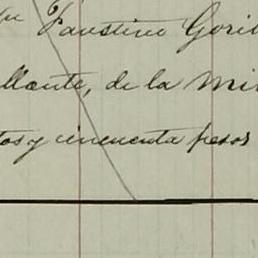 Faustino Gorib
llante, de la Mi
tos y cincuenta pesos